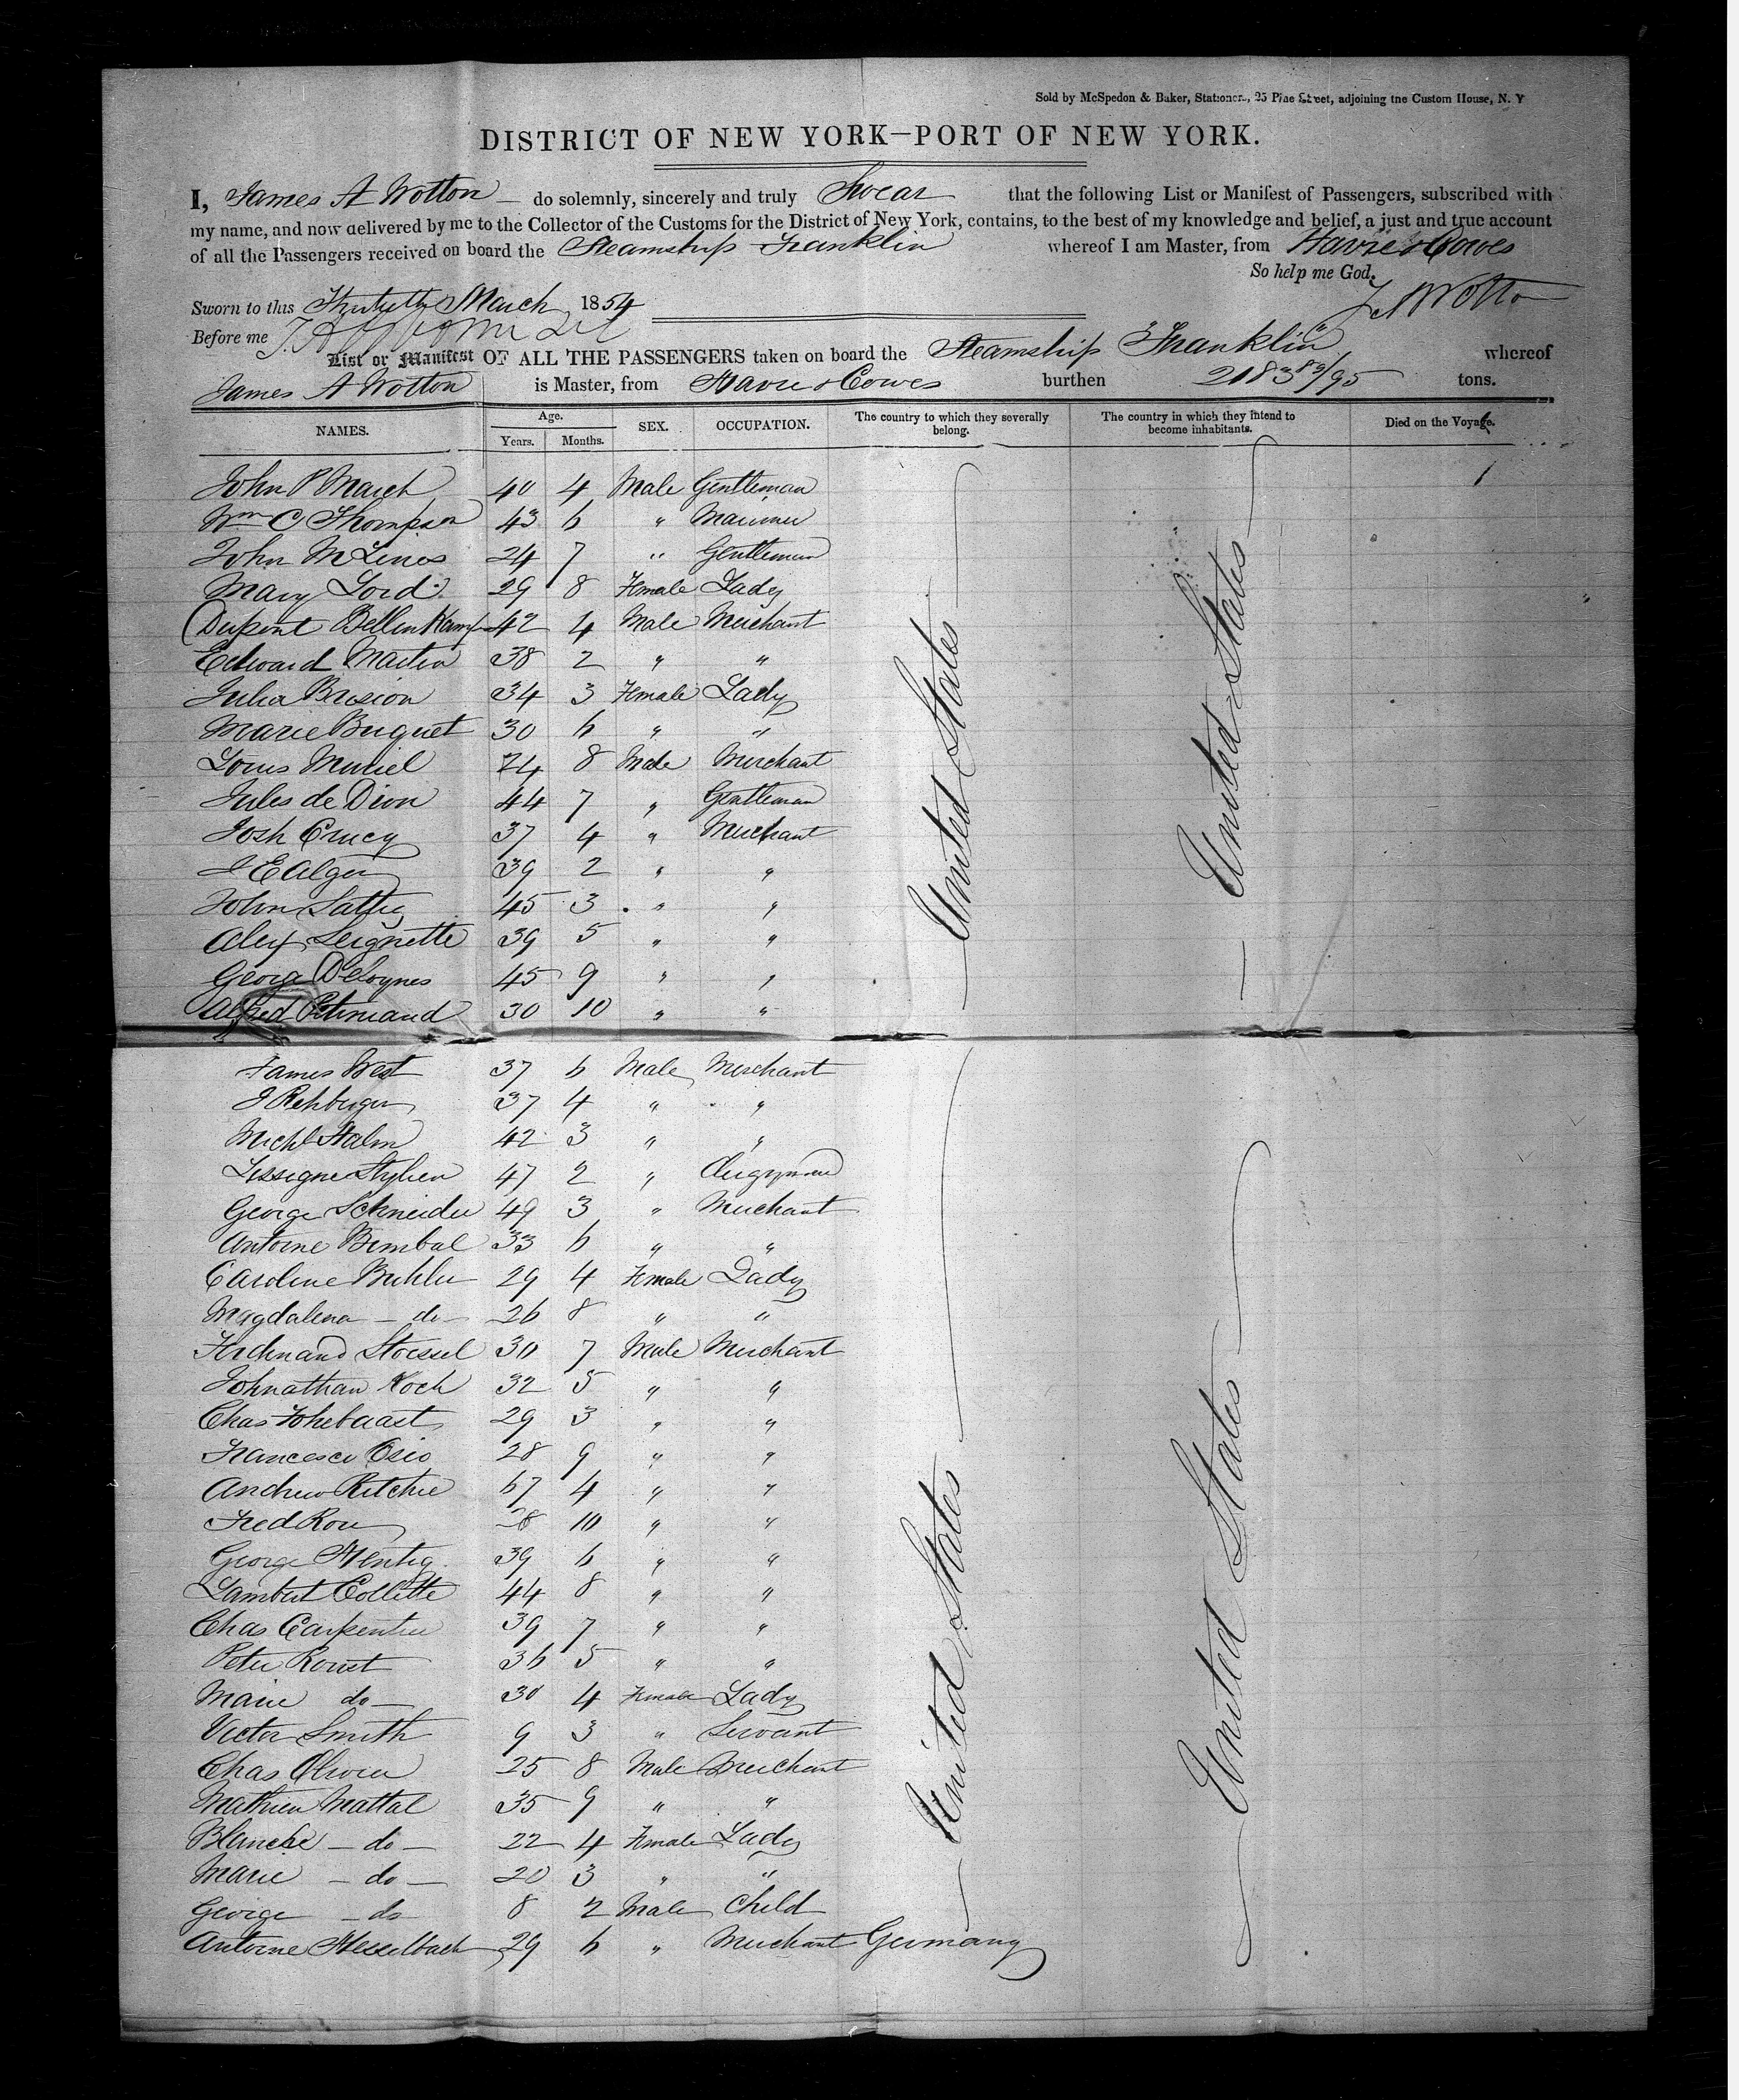 Sold by McSpedon & Baker, Stationers, 25 Pine Street, adjoining the Custom House, N. Y
DISTRICT OF NEW YORK—PORT OF NEW YORK.
I, James A Wotton — do solemnly, sincerely and truly Swear that the following List or Manifest of Passengers, subscribed with
my name, and now delivered by me to the Collector of the Customs for the District of New York, contains, to the best of my knowledge and belief, a just and true account
of all the Passengers received on board the Steamship Franklin whereof I am Master, from Havre & Cowes
So help me God.
J A Wotton
Sworn to this Thirtieth March 1854
Before me
List or Manifest OF ALL THE PASSENGERS taken on board the Steamship Franklin whereof
James A Wotton is Master, from Havre & Cowes burthen 2183 83/95 tons.
NAMES. Age. Years. Months. SEX. OCCUPATION. The country to which they severally belong. The country in which they intend to become inhabitants. Died on the Voyage.
John P March 40 4 Male Gentleman
Wm C Thompson 43 6 " Mariner
John M Lines 24 7 " Gentleman
Mary Lord 29 8 Female Lady
Dupont Bellenkamp 42 4 Male Merchant
Edward Martin 38 2 " "
Julia Brision 34 3 Female Lady
Marie Buguet 30 6 " "
Louis Muriel 74 8 Male Merchant
Jules de Dion 44 7 " Gentleman
Josh Crucy 37 4 " Merchant
J E Alger 39 2 " "
John Sattig 45 3 " "
Alex Seignette 39 5 " "
George DeLoynes 45 9 " "
Alfred Petiniaud 30 10 " "
— United States —
— United States —
James West 37 6 Male Merchant
J Rehberger 37 4 " "
Michl Halm 42 3 " "
Lissigne Stephen 47 2 " Clergyman
George Schneider 49 3 " Merchant
Antoine Bimbal 33 6 " "
Caroline Buhler 29 4 Female Lady
Magdalena — do — 26 8 " "
Ferdinand Stoessel 30 7 Male Merchant
Johnathan Koch 32 5 " "
Chas 29 3 " "
Francesco Osio 28 9 " "
Andrew Ritchie 67 4 " "
Fred Rou 28 10 " "
George Hentig 39 6 " "
Lambert Collette 44 8 " "
Chas Carpentier 39 7 " "
Peter Roust 36 5 " "
Marie do — 30 4 Female Lady
Victor Smith 9 3 " Servant
Chas Olivier 25 8 Male Merchant
Mathieu Mattal 35 9 " "
Blanche — do — 22 4 Female Lady
Marie — do — 20 3 " "
George — do 8 2 Male Child
Antoine Hesselbach 29 6 " Merchant Germany
— United States —
— United States —